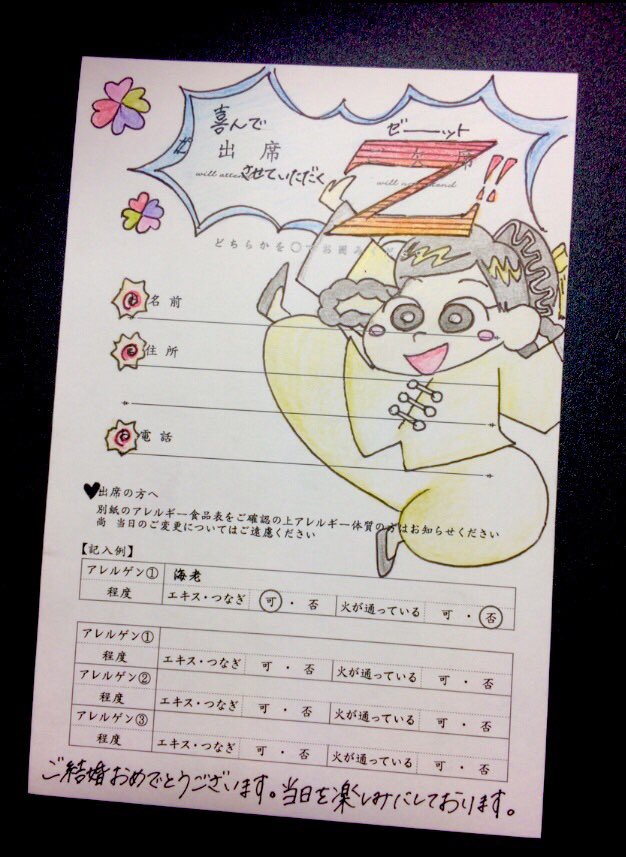 喜んで ゼーット
出席 席
will attend
させていただく
Z!!
どちらかを〇でお囲み
お名前
ご住所
お電話
♥出席の方へ
別紙のアレルギー食品表をご確認の上アレルギー体質の方はお知らせください
尚 当日のご変更についてはご遠慮ください
【記入例】
アレルゲン① 海老
程度 エキス・つなぎ 可・否 火が通っている 可・否
アレルゲン①
程度 エキス・つなぎ 可・否 火が通っている 可・否
アレルゲン②
程度 エキス・つなぎ 可・否 火が通っている 可・否
アレルゲン③
程度 エキス・つなぎ 可・否 火が通っている 可・否
ご結婚おめでとうございます。当日を楽しみにしております。